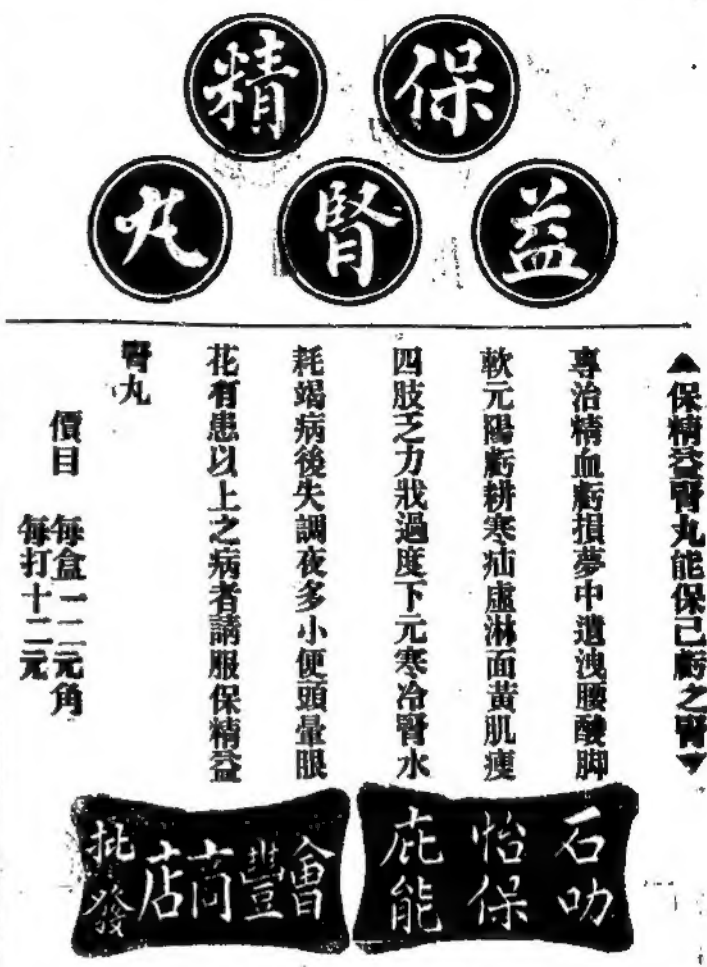 保精
益腎丸
▲保精益腎丸能保己虧之腎▼
專治精血虧損夢中遺洩腰酸脚
軟元陽虧耕寒疝虛淋面黃肌瘦
四肢乏力狀過度下元寒冷腎水
耗竭病後失調夜多小便頭暈眼
花有患以上之病者請服保精益
腎丸
價目 每盒一二元角
每打十二元
石叻
怡保
庇能
會豐商店
批發